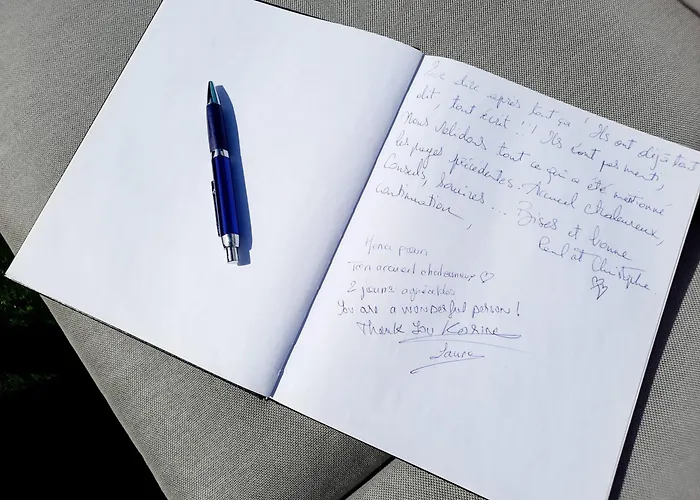 Que dire après tout ça ! Ils ont déjà tout
dit, tout écrit !! Ils n'ont pas menti,
Nous validons tout ce qui a été mentionné
les pages précédentes. Accueil chaleureux,
Conseils, sourires ... Bises et bonne
continuation,
Paul et Christophe
Merci pour
Ton accueil chaleureux ♡
2 jours agréables
You are a wonderful person !
Thank You Karine
Laura